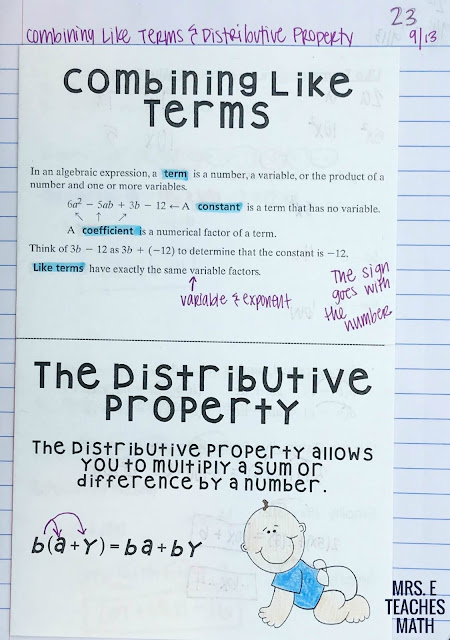 23
Combining Like Terms & Distributive Property 9/13
Combining Like
Terms
In an algebraic expression, a term is a number, a variable, or the product of a
number and one or more variables.
6a² − 5ab + 3b − 12 ← A constant is a term that has no variable.
A coefficient is a numerical factor of a term.
Think of 3b − 12 as 3b + (−12) to determine that the constant is −12.
Like terms have exactly the same variable factors.
variable & exponent
The sign
goes with
the
number
The Distributive
Property
The Distributive Property allows
you to multiply a sum or
difference by a number.
b(a+y)=ba+by
MRS. E
TEACHES
MATH